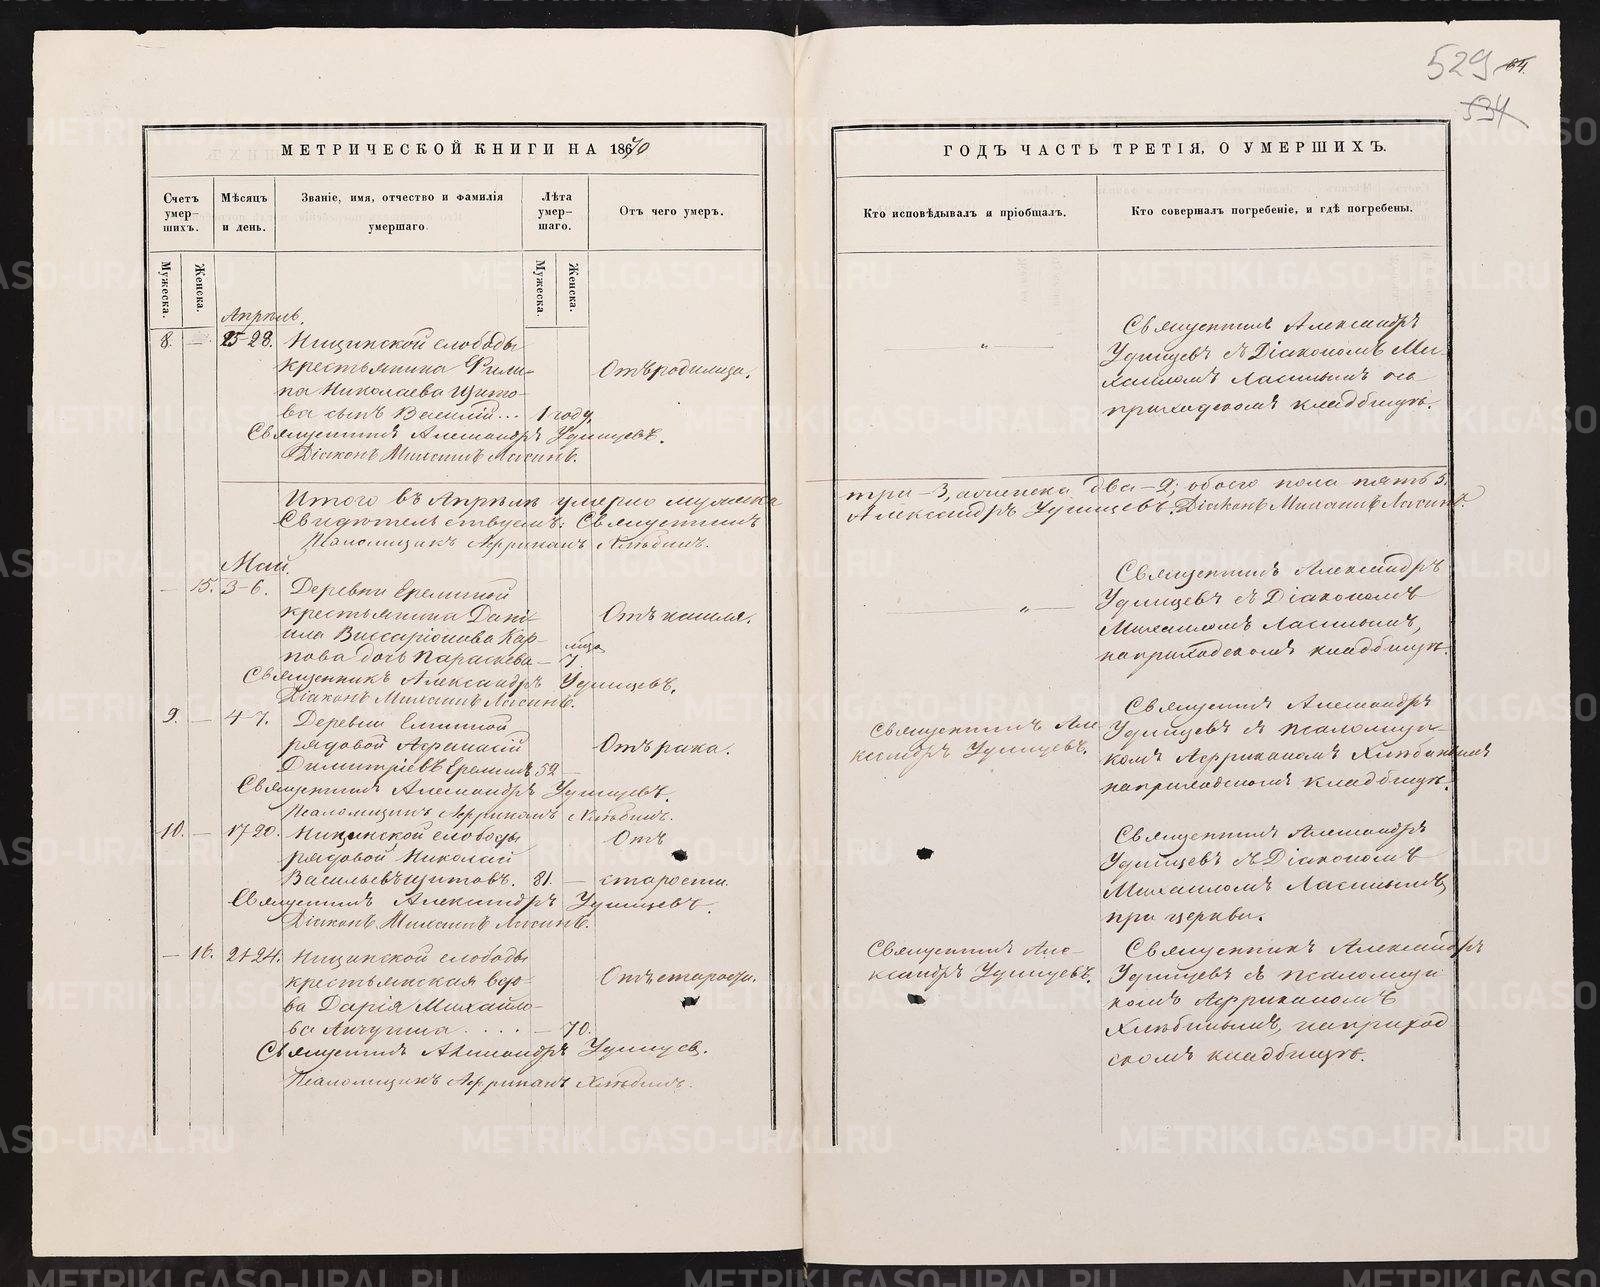 529 64.
534
МЕТРИЧЕСКОЙ КНИГИ НА 1870
ГОДЪ ЧАСТЬ ТРЕТІЯ, О УМЕРШИХЪ.
Счетъ умер-шихъ.
Мѣсяцъ и день.
Званіе, имя, отчество и фамилія умершаго
Лѣта умер-шаго.
Отъ чего умеръ.
Кто исповѣдывалъ и пріобщалъ.
Кто совершалъ погребеніе, и гдѣ погребены.
Мужеска.
Женска.
Мужеска.
Женска.
Апрѣль.
8. — 25-28. Ницинской слободы
крестьянина Фили-
па Николаева Щито-
ва сынъ Василій... 1 году
Отъ родимца.
Священникъ Александръ Удинцевъ.
Діаконъ Михаилъ Ласинъ.
Священникъ Александръ
Удинцевъ съ Діакономъ Ми-
хаиломъ Ласинымъ на
приходскомъ кладбищѣ.
Итого въ Апрѣлѣ умерло мужеска
три - 3, а женска два - 2; обоего пола пять 5.
Свидѣтельствуемъ: Священникъ
Александръ Удинцевъ. Діаконъ Михаилъ Ласинъ.
Псаломщикъ Африканъ Хлѣбинъ.
Май.
— 15. 3-6. Деревни Ереминой
крестьянина Дані-
ила Виссаріонова Кар-
пова дочь Параскева — 7
Отъ кашля.
Священникъ Александръ Удинцевъ.
Діаконъ Михаилъ Ласинъ.
Священникъ Александръ
Удинцевъ съ Діакономъ
Михаиломъ Ласинымъ,
на приходскомъ кладбищѣ.
9. — 4-7. Деревни
рядовой Афанасій
Димитріевъ Ереминъ 52 —
Отъ рака.
Священникъ Александръ Удинцевъ.
Псаломщикъ Африканъ Хлѣбинъ.
Священникъ Але-
ксандръ Удинцевъ.
Священникъ Александръ
Удинцевъ съ псаломщи-
комъ Африканомъ Хлѣбинымъ
на приходскомъ кладбищѣ.
10. — 17-20. Ницинской слободы
рядовой Николай
Васильевъ Щитовъ. 81. —
Отъ
старости.
Священникъ Александръ Удинцевъ.
Діаконъ Михаилъ Ласинъ.
Священникъ Александръ
Удинцевъ съ Діакономъ
Михаиломъ Ласинымъ,
при церкви.
— 16. 21-24. Ницинской слободы
крестьянская вдо-
ва Дарія Михайло-
ва .... — 70.
Отъ старости.
Священникъ Александръ Удинцевъ.
Псаломщикъ Африканъ Хлѣбинъ.
Священникъ Але-
ксандръ Удинцевъ.
Священникъ Александръ
Удинцевъ съ псаломщи
комъ Африканомъ
Хлѣбинымъ, на приход
скомъ кладбищѣ.
METRIKI.GASO-URAL.RU